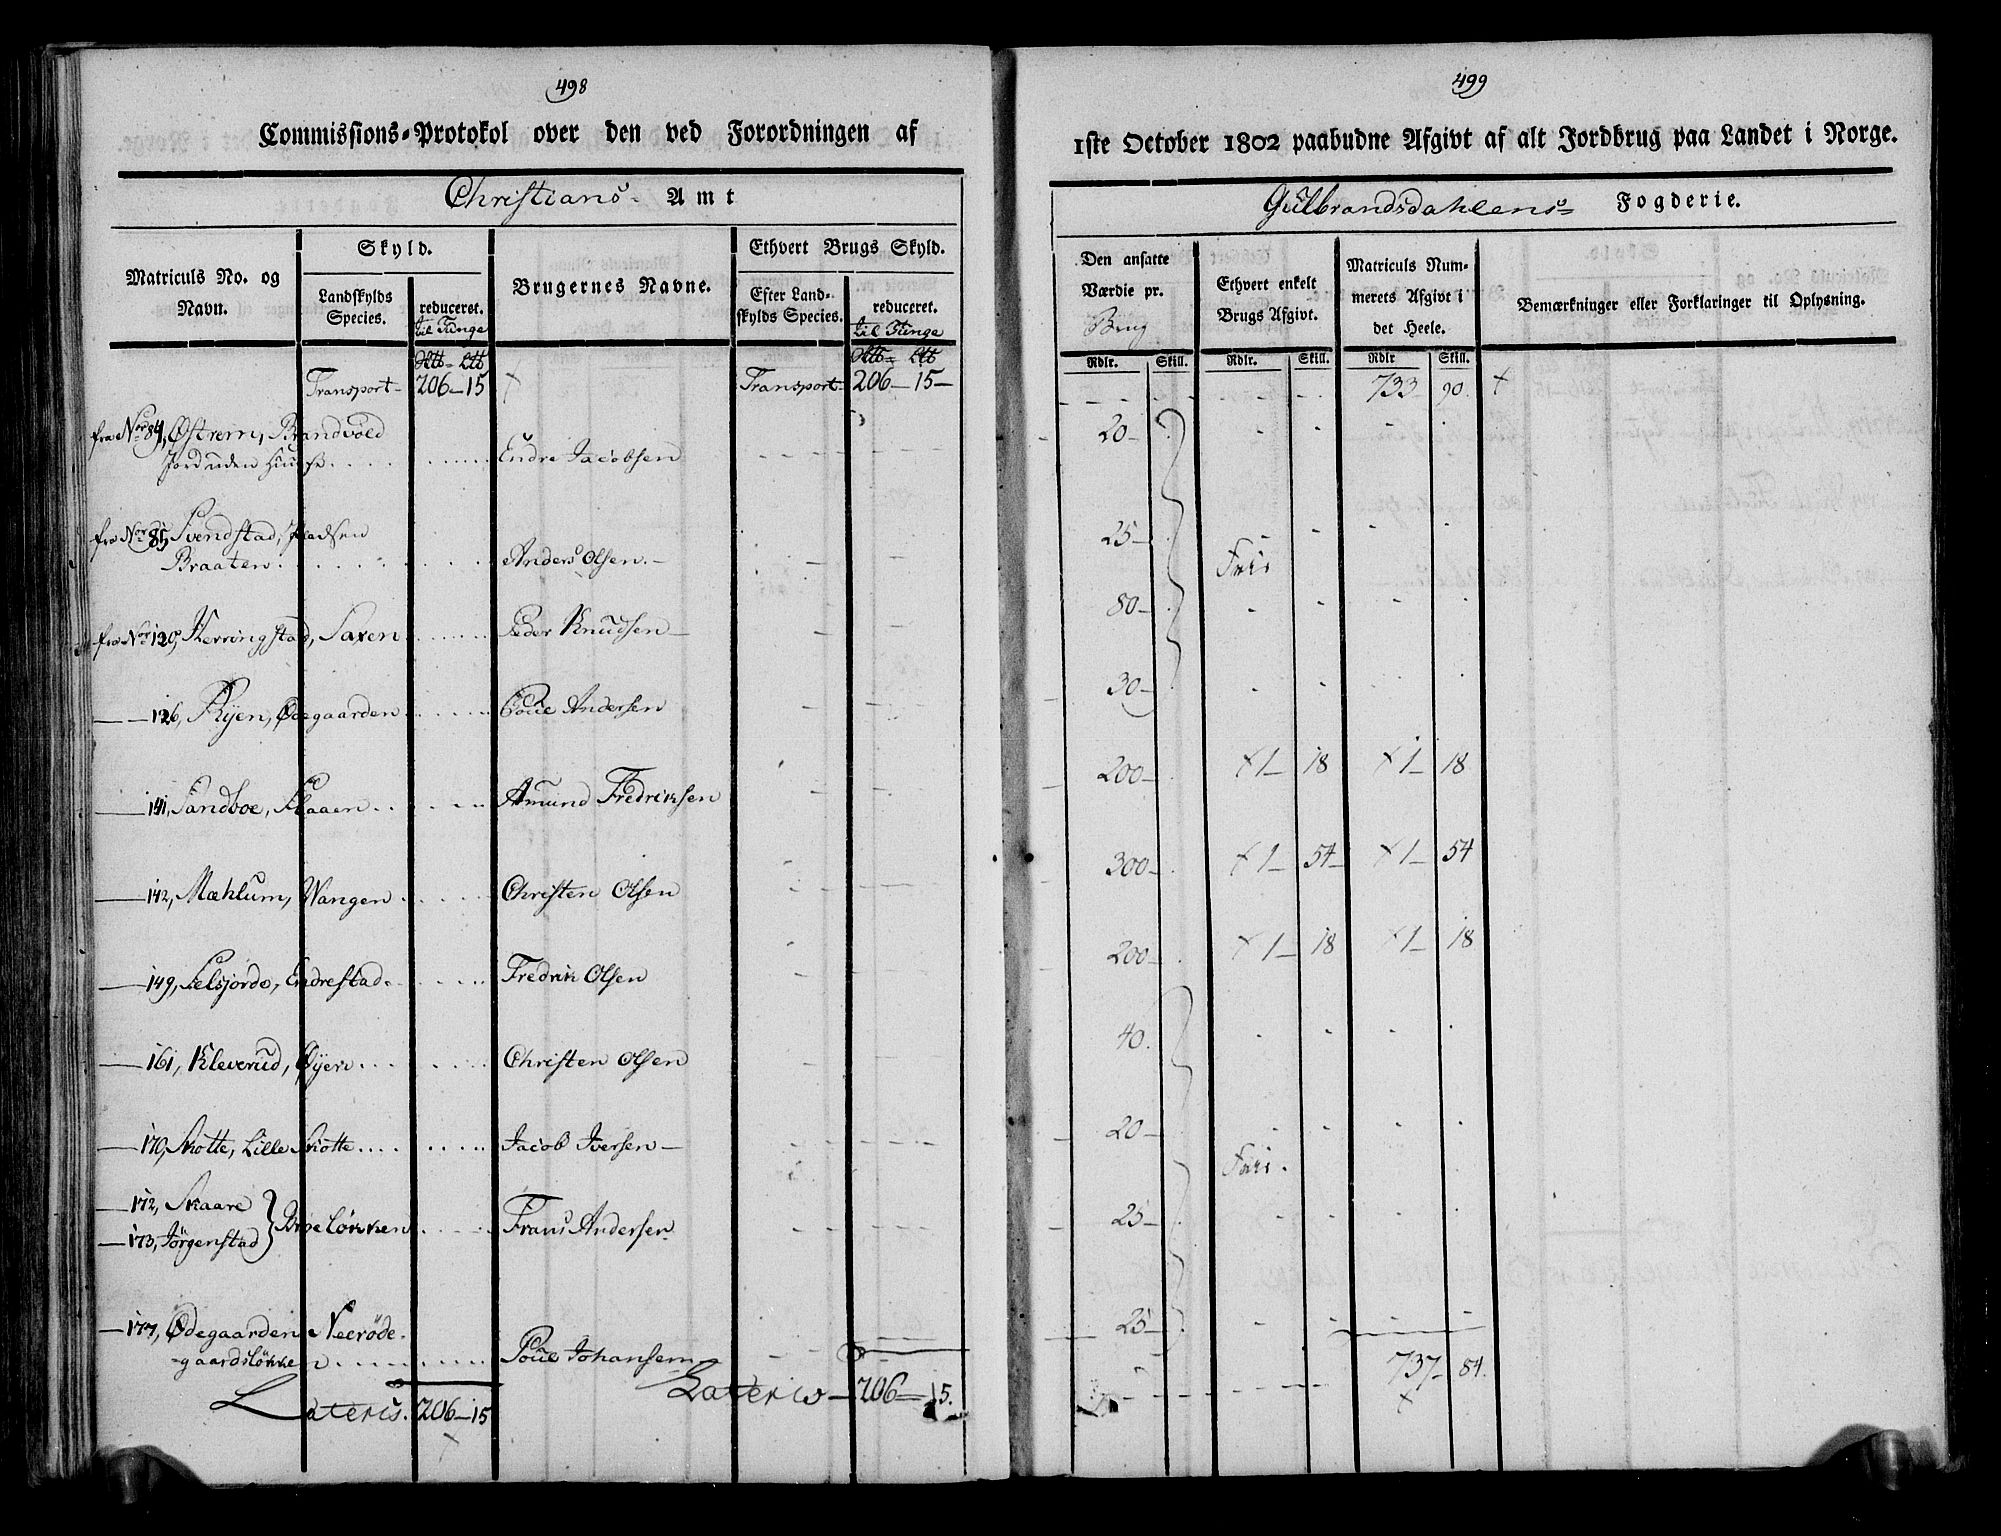 498
Commissions-Protokol over den ved Forordningen af
Christians- Amt
Matriculs No. og Navn.
Skyld.
Landskylds Species.
reduceret.
til Tunge
Brugernes Navne.
Ethvert Brugs Skyld.
Efter Landskylds Species.
reduceret.
til Tunge
Transport- 206-15 Transport- 206-15-
fra No 84, Østrem, Brandvold
Jord uden Huuse Endre Jacobsen
fra No 85, Svendstad, Pladsen
Braaten Anders Olsen.-
fra No 120, Kerringstad, Saxen Peder Knudsen-
126, Ryen, Ødegaarden Poul Andersen
141, Sandboe, Flaaen Amund Fredriksen
142, Mæhlum, Wangen Christen Olsen
149, Selsjorde, Endrestad Fredrik Olsen
161, Kleverud, Øyen Christen Olsen
170, Skotte, Lille Skotte Jacob Iversen-
172, Skaare
173, Jörgenstad } Broelökken Frans Andersen
177, Ødegaarden Neeröde-
gaardslökken Poul Johansen
Lateris. 206-15 Lateris-206-15.
499
1ste October 1802 paabudne Afgivt af alt Jordbrug paa Landet i Norge.
Gulbrandsdahlens Fogderie.
Den ansatte Værdie pr.
Brug
Ethvert enkelt Brugs Afgivt.
Matriculs Nummerets Afgivt i det Heele.
Bemærkninger eller Forklaringer til Oplysning.
Rdlr. Skill. Rdlr. Skill. Rdlr Skill.
733 90.
20-
25-
Frie
80-
30-
200- 1- 18 1- 18
300- 1- 54- 1- 54
200- 1- 18 1- 18
40.
20-
Frie.
25-
25-
737- 84.